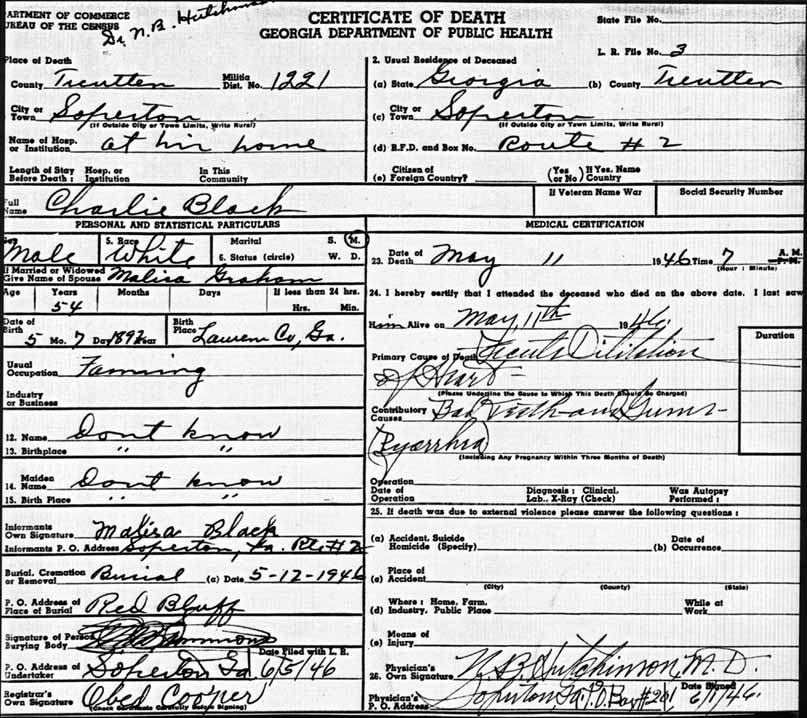 PARTMENT OF COMMERCE
UREAU OF THE CENSUS
Dr. N. B. Hutchinson
CERTIFICATE OF DEATH
GEORGIA DEPARTMENT OF PUBLIC HEALTH
State File No.
L. R. File No. 3
Place of Death
County Treutlen Militia Dist. No. 1221
City or Town Soperton
(If Outside City or Town Limits, Write Rural)
Name of Hosp. or Institution at his home
Length of Stay Before Death: Hosp. or Institution In This Community
2. Usual Residence of Deceased
(a) State Georgia (b) County Treutlen
City or
(c) Town Soperton
(If Outside City or Town Limits, Write Rural)
(d) R.F.D. and Box No. Route # 2
Citizen of
(e) Foreign Country? (Yes or No) If Yes, Name Country
Full Name Charlie Black
If Veteran Name War
Social Security Number
PERSONAL AND STATISTICAL PARTICULARS
Sex Male 5. Race White Marital 6. Status (circle) S. M. W. D.
If Married or Widowed Give Name of Spouse Malisa Graham
Age Years Months Days If less than 24 hrs.
54 Hrs. Min.
Date of Birth 5 Mo. 7 Day 1892 Year Birth Place Lauren Co, Ga.
Usual Occupation Farming
Industry or Business
12. Name Dont know
13. Birthplace " "
Maiden
14. Name Dont know
15. Birth Place " "
Informants Own Signature Malisa Black
Informants P. O. Address Soperton, Ga. Rte # 2
Burial, Cremation or Removal Burial (a) Date 5-12-1946
P. O. Address of Place of Burial Red Bluff
Signature of Person Burying Body Sammons
Date Filed with L. R.
P. O. Address of Undertaker Soperton Ga 6/5/46
Registrar's Own Signature Obed Cooper
(Check Certificate Carefully Before Signing)
MEDICAL CERTIFICATION
23. Date of Death May 11 1946 Time 7 A. M. P. M.
(Hour : Minute)
24. I hereby certify that I attended the deceased who died on the above date. I last saw
Him Alive on May 11th 1946
Duration
Primary Cause of Death Acute Dilitation
of Heart
(Please Underline the Cause to Which This Death Should be Charged)
Contributory Causes Bad Teeth and Gums -
(Pyorrhia)
(Including Any Pregnancy Within Three Months of Death)
Operation
Date of Operation Diagnosis: Clinical, Lab., X-Ray (Check) Was Autopsy Performed:
25. If death was due to external violence please answer the following questions:
(a) Accident, Suicide Homicide (Specify) (b) Date of Occurrence
Place of
(c) Accident
(City) (County) (State)
Where: Home, Farm,
(d) Industry, Public Place While at Work
Means of
(e) Injury
26. Physician's Own Signature N. B. Hutchinson, M. D.
Physician's P. O. Address Soperton Ga. P.O. Box # 201 Date Signed 6/1/46.